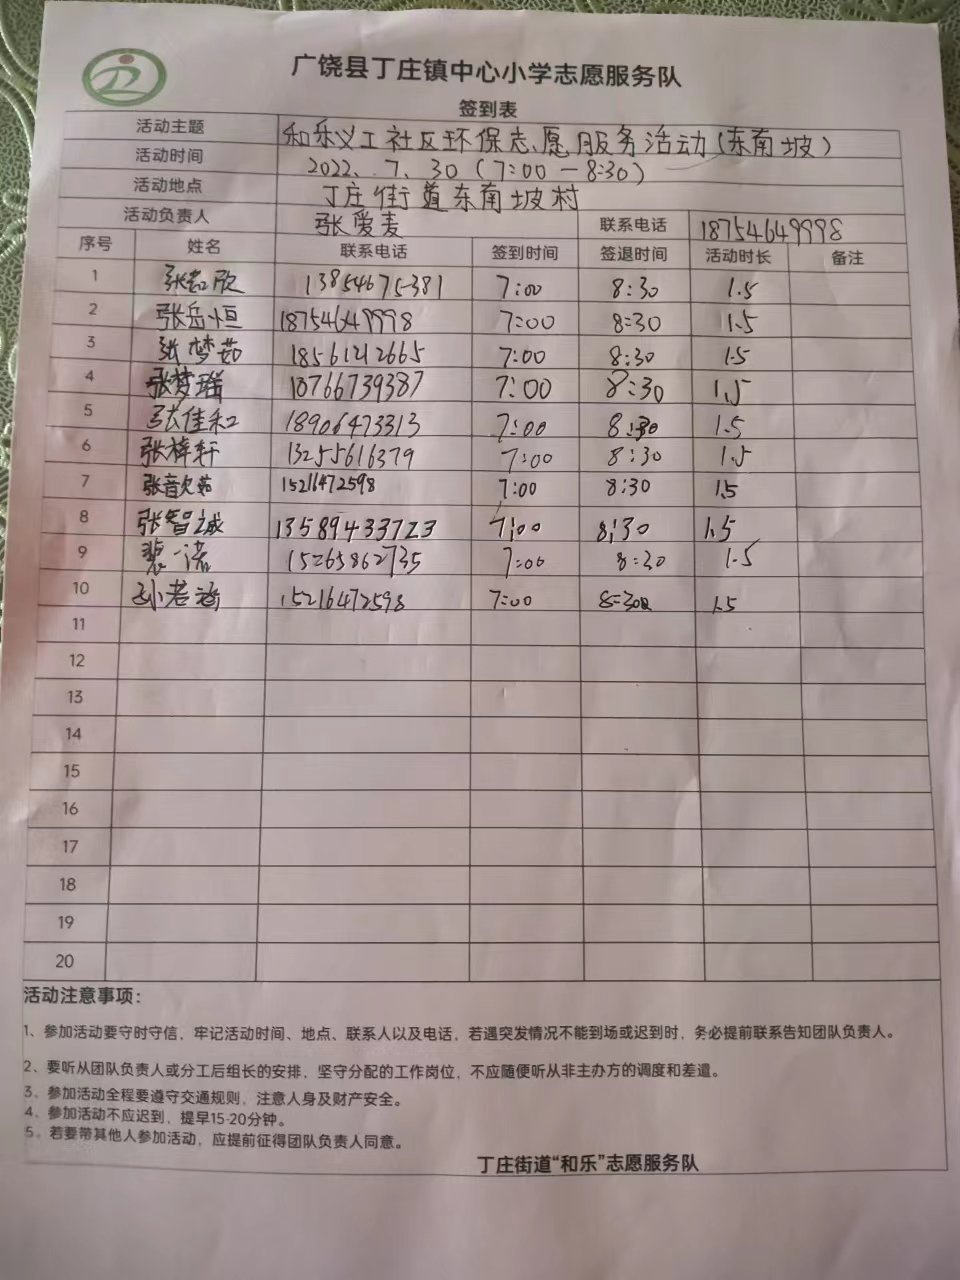 广饶县丁庄镇中心小学志愿服务队
签到表
活动主题 和乐义工社区环保志愿服务活动(东南坡)
活动时间 2022.7.30(7:00-8:30)
活动地点 丁庄街道东南坡村
活动负责人 张爱麦 联系电话 18754649998
序号 姓名 联系电话 签到时间 签退时间 活动时长 备注
1 张若欣 13854675381 7:00 8:30 1.5
2 张岳恒 18754649998 7:00 8:30 1.5
3 张梦茹 18561212665 7:00 8:30 1.5
4 张梦瑶 18766739387 7:00 8:30 1.5
5 张佳和 18906473313 7:00 8:30 1.5
6 张梓轩 13255616379 7:00 8:30 1.5
7 张歆茹 15216472598 7:00 8:30 1.5
8 张智诚 13589433723 7:00 8:30 1.5
9 裴一诺 15265862735 7:00 8:30 1.5
10 孙若涵 15216472598 7:00 8:30 1.5
11
12
13
14
15
16
17
18
19
20
活动注意事项:
1、参加活动要守时守信,牢记活动时间、地点、联系人以及电话,若遇突发情况不能到场或迟到时,务必提前联系告知团队负责人。
2、要听从团队负责人或分工后组长的安排,坚守分配的工作岗位,不应随便听从非主办方的调度和差遣。
3、参加活动全程要遵守交通规则,注意人身及财产安全。
4、参加活动不应迟到,提早15-20分钟。
5、若要带其他人参加活动,应提前征得团队负责人同意。
丁庄街道“和乐”志愿服务队